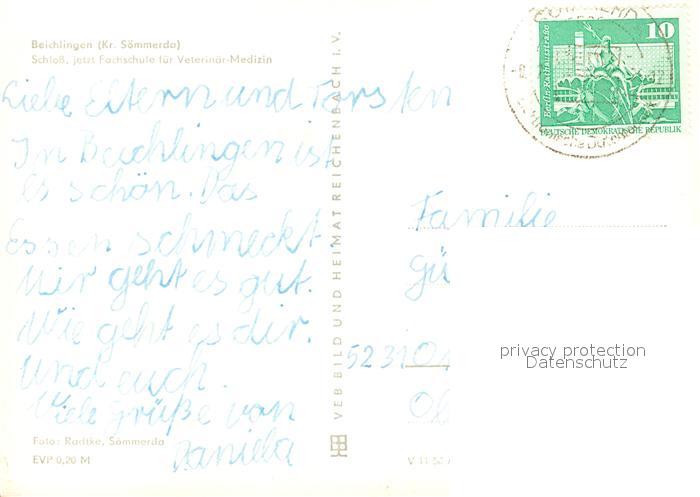 Beichlingen (Kr. Sömmerda)
Schloß, jetzt Fachschule für Veterinär-Medizin
Liebe Eltern und Torsten
In Beichlingen ist
es schön. Das
Essen schmeckt.
Mir geht es gut.
Wie geht es dir.
Und euch.
Viele Grüße von
Daniela
Foto: Radtke, Sömmerda
EVP 0,20 M
VEB BILD UND HEIMAT REICHENBACH I. V.
10
Berlin, Rathausstraße
DEUTSCHE DEMOKRATISCHE REPUBLIK
Familie
Gü
5231
privacy protection
Datenschutz